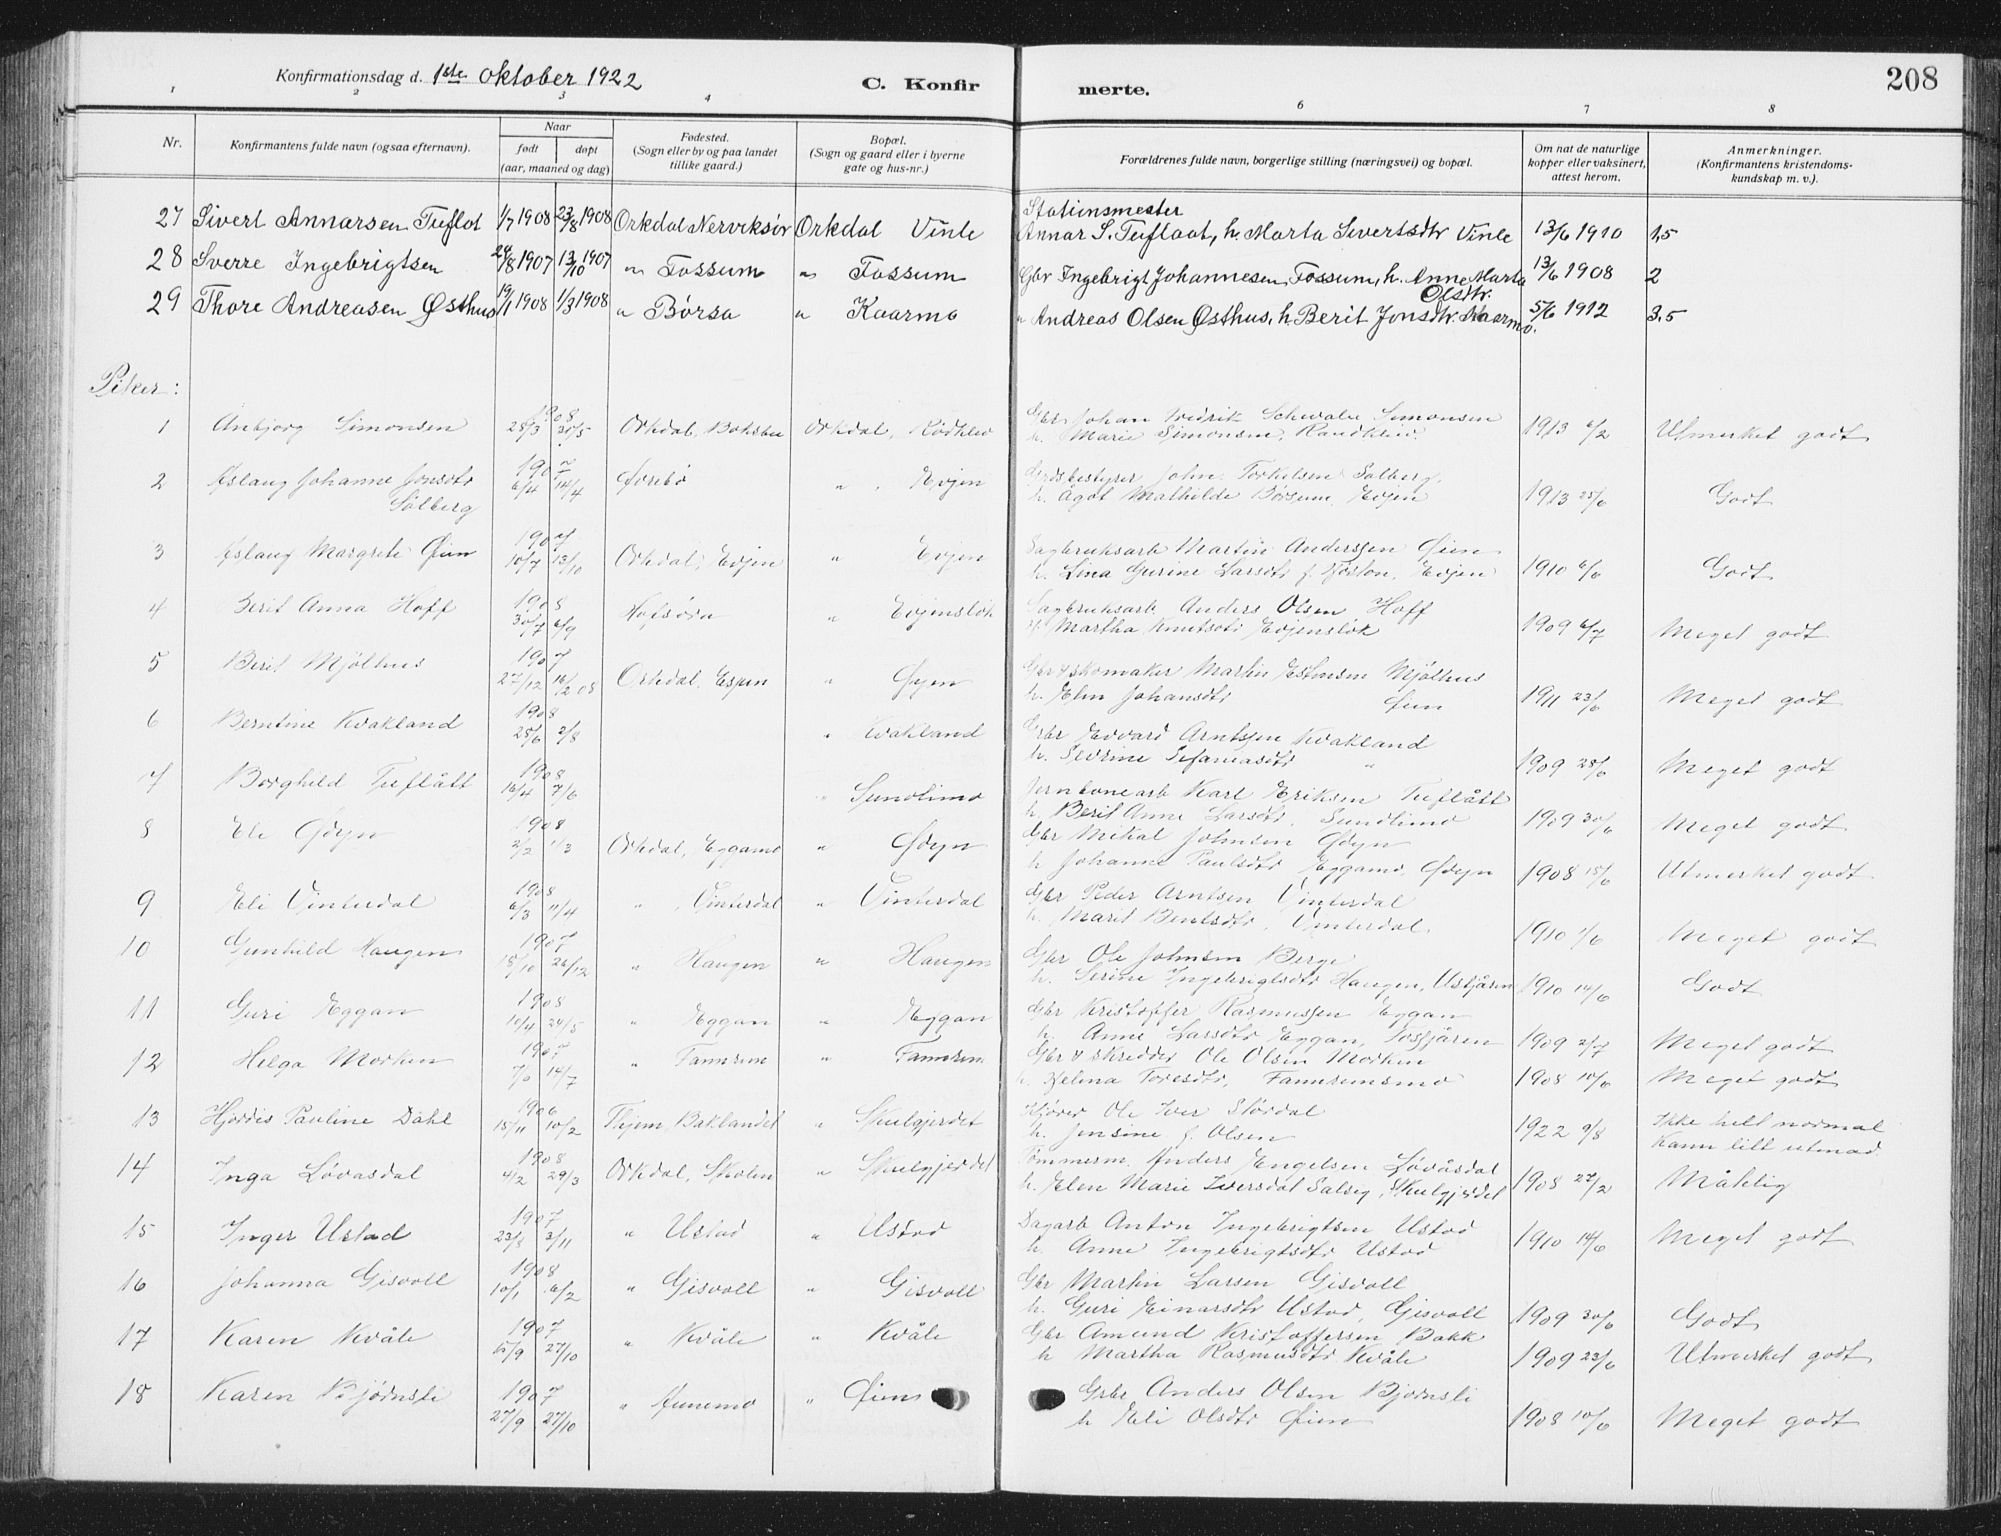 Konfirmationsdag d. 1ste Oktober 1922
C. Konfirmerte.
208
1 2 3 4 6 7 8
Nr.
Konfirmantens fulde navn (ogsaa efternavn).
Naar
født
døpt
(aar, maaned og dag)
Fødested.
(Sogn eller by og paa landet
tillike gaard.)
Bopæl.
(Sogn og gaard eller i byerne
gate og hus-nr.)
Forældrenes fulde navn, borgerlige stilling (næringsvei) og bopæl.
Om nat de naturlige
kopper eller vaksinert,
attest herom.
Anmerkninger.
(Konfirmantens kristendoms-
kundskap m. v.).
Stationsmester
27 Sivert Annarsen Tuflot 1/7 1908 23/8 1908 Orkdal Nerviksør Orkdal Vinle Annar S. Tuflaat, h. Marta Sivertsdtr Vinle 13/6 1910 1,5
28 Sverre Ingebrigtsen 24/8 1907 13/10 1907 " Fossum " Fossum Gbr Ingebrigt Johannesen Fossum, h. Anne Marta 13/6 1908 2
Olsdtr.
29 Thore Andreasen Østhus 19/1 1908 1/3 1908 " Børsa " Kaarmo " Andreas Olsen Østhus, h Berit Jonsdtr. Kaarmo. 5/6 1912 3.5
Piker:
1908 Gbr Johan Fredrik Simonsen
1 Anbjørg Simonsen 28/3 30/5 Orkdal, Orkdal, h. Marie Simonsen, 1913 6/2 Utmerket godt
1907 John Torkelsen Solberg,
2 Aslaug Johanne Jonsdtr 6/4 14/4 " Evjen h. Ågot Mathilde Børsum, Evjen 1913 25/6 Godt
Solberg
1907 Sagbruksarb Martin Anderssen Øien
3 Aslaug Margrete Øien 10/7 13/10 Orkdal, Evjen " Evjen h. Lina Gurine Larsdtr f. Evjen 1910 6/6 Godt
1908 Sagbruksarb. Anders Olsen Hoff
4 Berit Anna Hoff 30/7 6/9 Hofsøra " Evjensløk h. Martha Knutsdtr Evjensløk 1909 6/7 Meget godt
1907 Gbr & skomaker Martin Estensen Mjølhus
5 Berit Mjølhus 27/12 16/2 08 Orkdal, Espen " Øyen h. Elen Johansdtr Øien 1911 23/6 Meget godt
1908 Gbr Edvard Arntssen Kvakland
6 Berntine Kvakland 25/6 2/8 " Kvakland h. Sevrine Sefaniasdtr " 1909 28/6 Meget godt
1908 Jernbanearb Karl Eriksen Tuflått
7 Borghild Tuflått 16/4 7/6 " Sundlimo h. Berit Anne Larsdtr. Sundlimo 1909 30/6 Meget godt
1908 Gbr Mikal Johnsen Ødyn
8 Eli Ødyn 2/2 1/3 Orkdal, Eggamo " Ødyn h Johanne Paulsdtr Eggamo, Ødyn 1908 15/6 Utmerket godt
1908 Gbr Peder Arntsen Vinterdal
9 Eli Vinterdal 6/3 /4 " Vinterdal " Vinterdal h. Marit Bentsdtr, Vinterdal, 1910 1/6 Meget godt
1907 Gbr Ole Johnsen Berge
10 Gunhild Haugen 18/10 26/12 " Haugen " Haugen h. Serine Ingebrigtsdtr Haugen, Ustjåren 1910 14/6 Godt
1908 Gbr Kristoffer Rasmussen Eggan
11 Guri Eggan 10/4 24/5 " Eggan " Eggan h. Anne Larsdtr Eggan, 1909 2/7 Meget godt
1907 Gbr & skredder Ole Olsen Morken
12 Helga Morken 7/6 14/7 " Fannrem " Fannrem h. Helma Toresdtr, Fannremsmo 1908 10/6 Meget godt
1906 Kjører Ole Iver Størdal Ikke helt normal
13 Hjørdis Pauline Dahl 15/11 10/2 Thjem, Baklandet " Skulgjerdet h. Jensine f. Olsen 1922 9/8 Kann litt utenad.
1908 Tømmerm. Anders Engelsen Løvåsdal
14 Inga Løvasdal 4/2 29/3 Orkdal, Skolen " Skulgjerdet h. Elen Marie Iversdat Salsey, Skulgjerdet 1908 27/2 Måtelig
1907 Dagarb Anton Ingebrigtsen Ustad
15 Inger Ustad 23/8 3/11 " Ustad " Ustad h. Anne Ingebrigtsdtr Ustad 1910 14/6 Meget godt
1908 Gbr Martin Larsen Gisvoll
16 Johanna Gisvoll 10/1 16/2 " Gisvoll " Gisvoll h. Guri Einarsdtr Ustad, Gisvoll 1909 30/6 Godt
1907 Gbr Amund Kristoffersen Bakk
17 Karen Kvåle 15/9 27/10 " Kvåle " Kvåle h Martha Rasmusdtr Kvåle 1909 23/6 Utmerket godt
1907 Gbr Anders Olsen Bjørnsli
18 Karen Bjørnsli 27/9 27/10 " " Øien h Eli Olsdtr Øien 1908 10/6 Meget godt